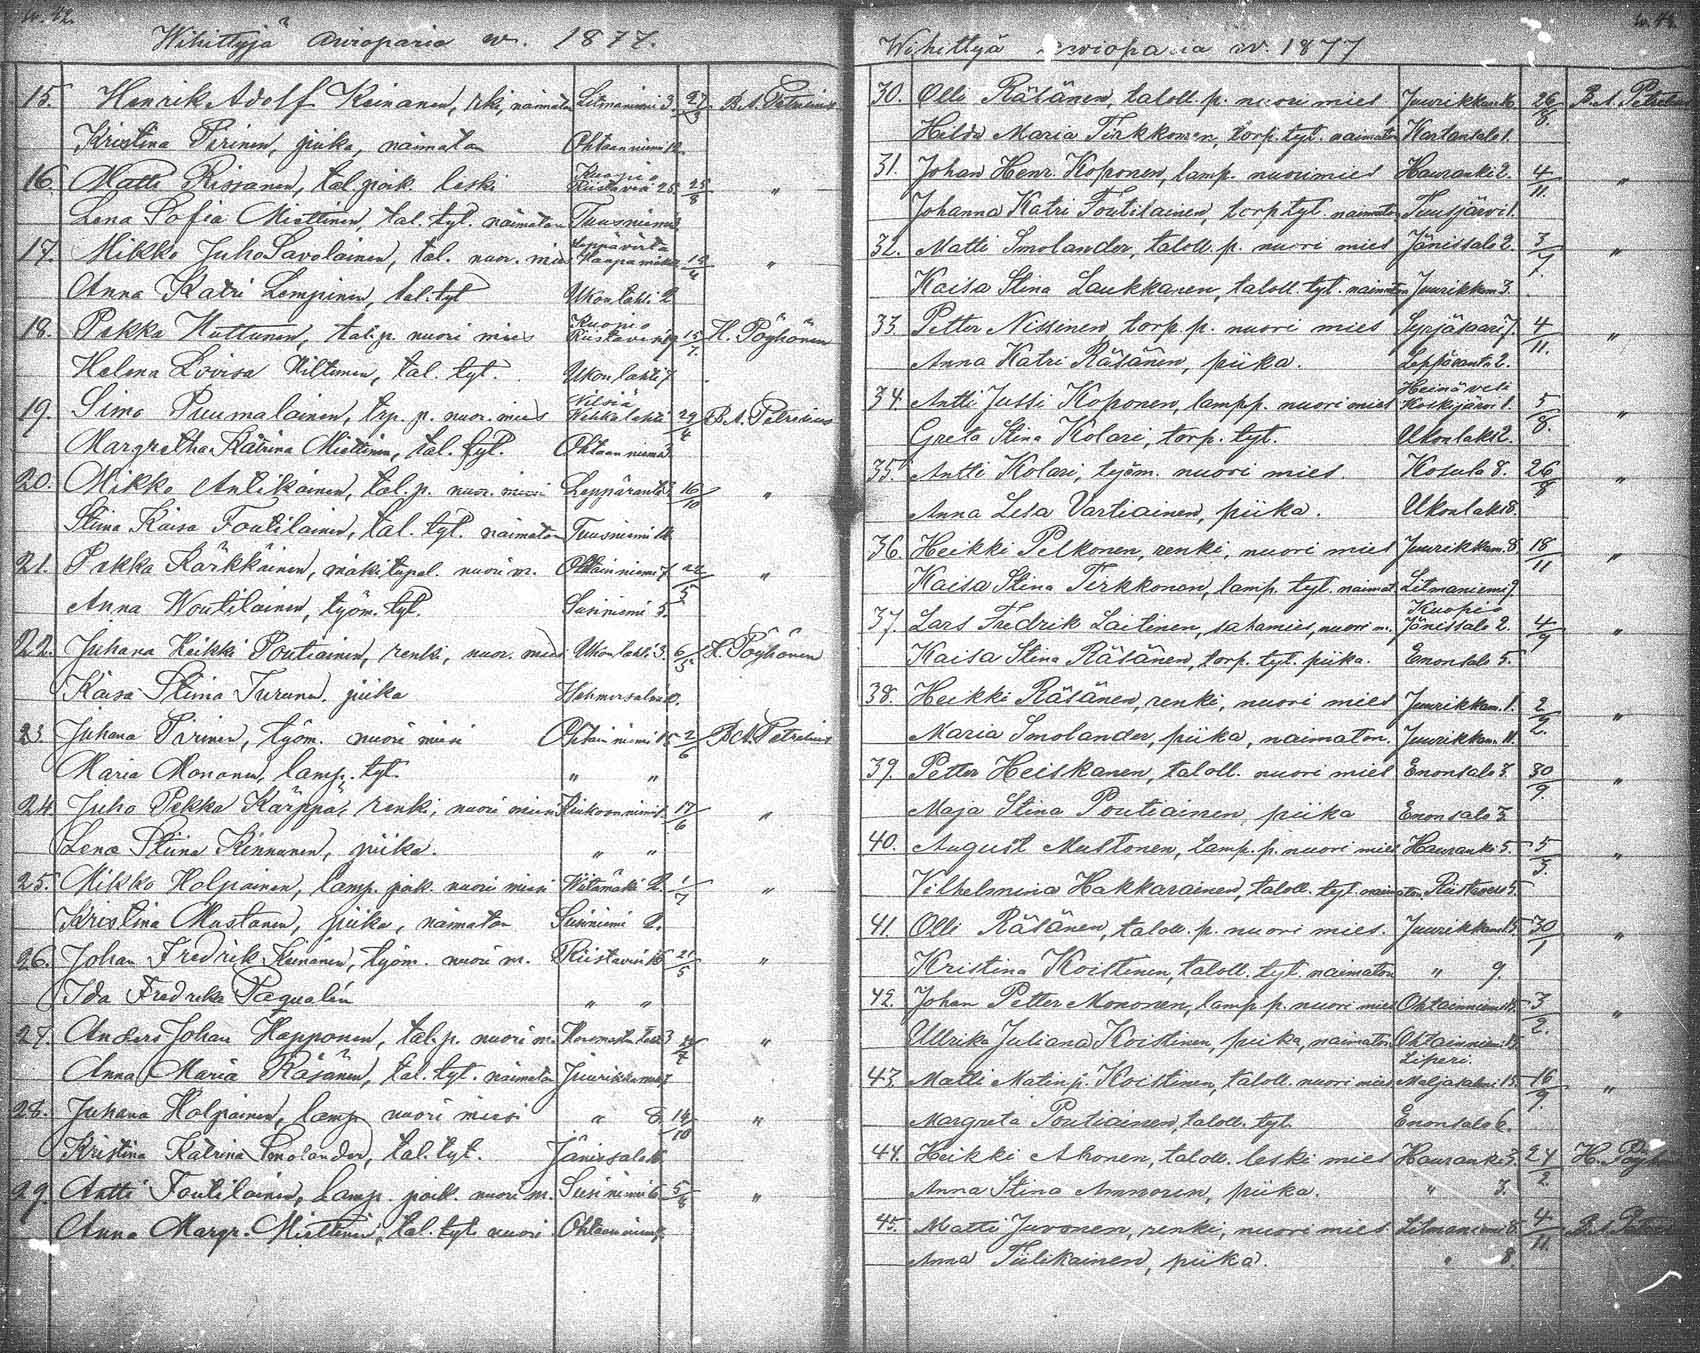 Wihittyjä Awioparia w. 1877.
15. Henrik Adolf Keinänen, rki, naimaton Litmaniemi 3. B. A. Petrelius
Kristina Pirinen, piika, naimaton Ohtaanniemi 12.
Kuopio
16. Matti Rissanen, tal. poik. leski Riistavesi 25. 25/8 "
Lena Sofia Miettinen, tal. tyt. naimaton Tuusniemi 3.
Leppävirta
17. Mikko Juho Savolainen, tal. nuor. mies "
Anna Katri Lempinen, tal. tyt Ukonlahti 2
Kuopio
18. Pekka Huttunen, tal. p. nuori mies Riistavesi 15/7. H. Pöyhönen
Helena Lovisa Miltunen, tal. tyt. Ukonlahti 7
Nilsiä
19. Simo Puumalainen, trp. p. nuor. mies 29/4 B. A. Petrelius
Margretha Katrina Miettinen, tal. tyt. Ohtaanniemi 3.
20. Mikko Antikainen, tal. p. nuor. mies Leppäranta 16/10 "
Stiina Kaisa Toutilainen, tal. tyt. naimaton Tuusniemi
21. Pekka Kärkkäinen, mäkitupal. nuori m. Ohtainniemi 7 22/5 "
Anna Woutilainen, työm. tyt. Susiniemi 5.
22. Juhana Heikki Poutiainen, renki, nuor. mies Ukonlahti 3. 6/5 H. Pöyhönen
Kaisa Stiina Turunen, piika
23. Juhana Pirinen, työm. nuori miesi Ohtainniemi 15 2/6 B. A. Petrelius
Maria Mononen, lamp. tyt. " "
24. Juho Pekka Kärppä, renki, nuori miesi 17/6 "
Lena Stiina Kinnunen, piika. " "
25. Mikko Holpainen, lamp. poik. nuori miesi Wätämäki 2. 1/7 "
Kristina Mustonen, piika, naimaton Susiniemi 2.
26. Johan Fredrik Keinänen, työm. nuori m. Riistavesi 21/5 "
Ida Fredrika Pæqualén " "
27. Anders Johan Happonen, tal. p. nuori m. "
Anna Maria Räsänen, tal. tyt. naimaton Juurikkamäki
28. Juhana Holpainen, lamp nuori miesi " 8. 14/10 "
Kristina Katrina Smolander, tal. tyt. Jänissalo
29. Antti Toutilainen, lamp. poik. nuori m. Susiniemi 6 5/8 "
Anna Margr. Miettinen, tal. tyt. nuori Ohtaanniemi
Wihittyä Awioparia w. 1877
30. Olli Räsänen, taloll. p. nuori mies Juurikkam. 26/8. B. A. Petrelius
Hilda Maria Tirkkonen, torp. tyt. naimaton Kartansalo 1.
31. Johan Henr. Koponen, lamp. nuorimies Hauranki 2. 4/11. "
Johanna Katri Toutilainen, torp tyt. naimaton Tuusjärvi 1.
32. Matti Smolander, taloll. p. nuori mies Jänissalo 2. 3/7. "
Kaisa Stina Laukkanen, taloll. tyt. naimaton Juurikkam 3.
33. Petter Nissinen torp. p. nuori mies Syrjäsaari 7. 4/11. "
Anna Katri Räsänen, piika. Leppäranta 2.
Heinävesi
34. Antti Jussi Koponen, lamp p. nuori mies Koskijärvi 1. 5/8. "
Greta Stina Kolari, torp. tyt. Ukonlaks 2.
35. Antti Kolari, työm. nuori mies. Kosula 8. 26/8 "
Anna Lesa Vartiainen, piika. Ukonlaks 8.
36. Heikki Pelkonen, renki, nuori mies Juurikkam. 8. 18/11 "
Kaisa Stina Tirkkonen, lamp. tyt. naimat. Litmaniemi 9.
Kuopio
37. Lars Fredrik Laitinen, satamies, nuori m. Jänissalo 2. 4/9 "
Kaisa Stina Räsänen, torp. tyt. piika. Enonsalo 5.
38. Heikki Räsänen, renki, nuori mies Juurikkam. 1. 2/2. "
Maria Smolander, piika, naimaton. Juurikkam. 11.
39. Petter Heiskanen, taloll. nuori mies Enonsalo 3. 30/9. "
Maja Stina Poutiainen, piika Enonsalo 3.
40. August Mustonen, lamp. p. nuori mies Hauranki 5. 5/3. "
Vilhelmina Hakkarainen, taloll. tyt. naimaton. Riistavesi 5.
41. Olli Räsänen, taloll. p. nuori mies. Juurikkam 15. 30/1 "
Kristina Koistinen, taloll. tyt. naimaton " 9.
42. Johan Petter Mononen, lamp. p. nuori mies Ohtainniemi 3/2. "
Ullrika Juliana Koistinen, piika, naimaton Ohtainniemi
Liperi
43. Matti Matinp. Koistinen, taloll. nuori mies Maljasalmi 15. 16/9. "
Margreta Poutiainen, taloll. tyt. Enonsalo 6.
44. Heikki Ahonen, taloll. leski mies Hauranki 3. 24/2. H. Pöyhönen
Anna Stina Ammorin, piika. " 3.
45. Matti Juvonen, renki, nuori mies Litmaniemi 8. 4/11. B. A. Petrelius
Anna Tiilikainen, piika. " 8.